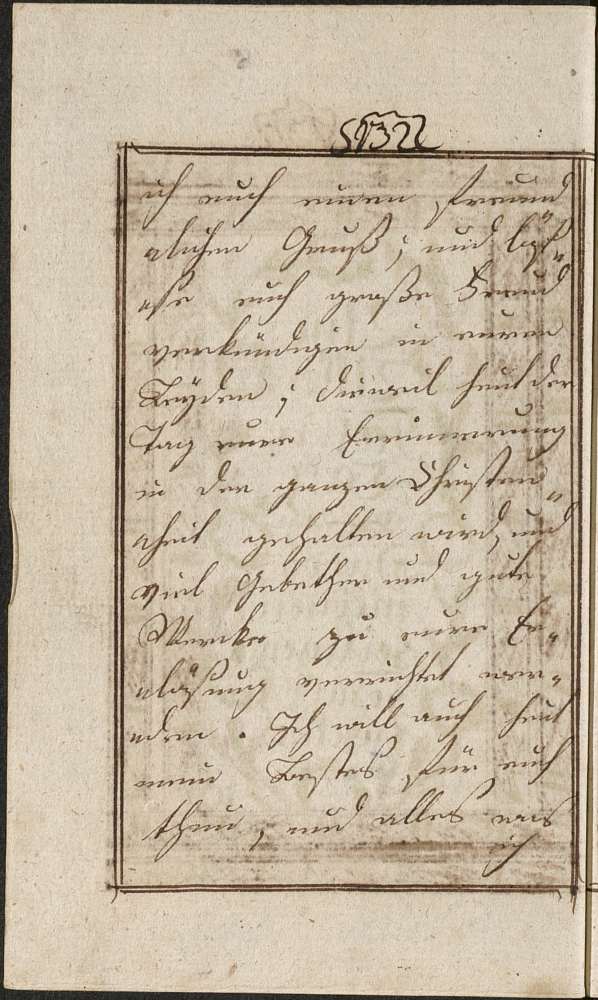 S 132 S
ich euch einen freund
lichen Gruß, und laß
euch große Freud
verkündigen in euren
Leyden, dieweil heut der
Tag eurer Erinnerung
in der ganzen Christen„
heit gehalten wird, und
viel Gebether und gute
Wercke zu eurer Er„
lösung verrichtet wer„
den. Ich will auch heut
mein Bestes für euch
thun, und alles was
ich